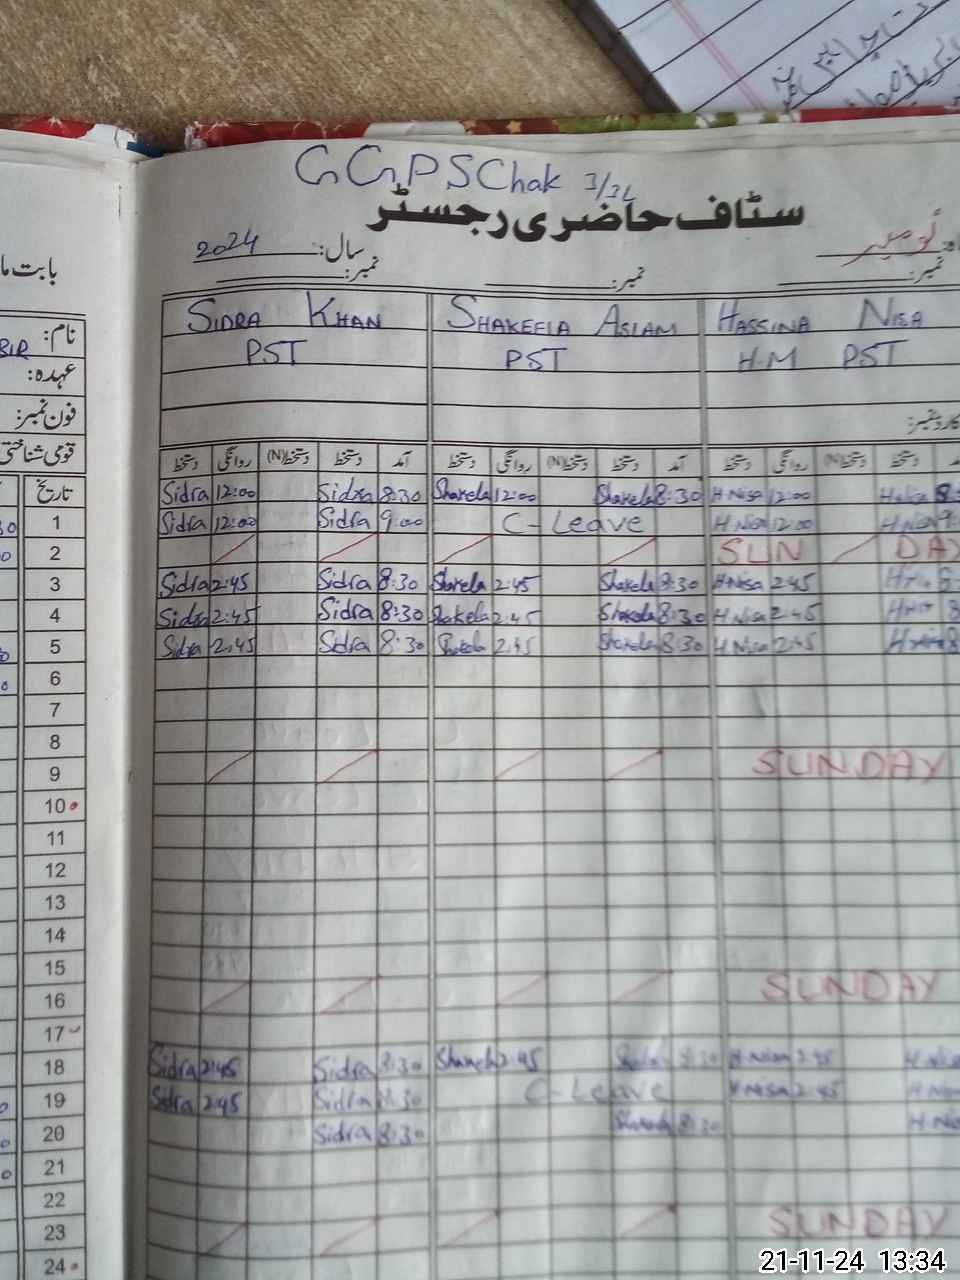 GGPS Chak 3/3L
سٹاف حاضری رجسٹر
سال: 2024 نومبر
نمبر: نمبر: نمبر:
بابت ما
نام:
عہدہ:
فون نمبر:
قومی شناختی
تاریخ
SIDRA KHAN SHAKEELA ASLAM HASSINA NISA
PST PST H.M PST
دستخط روانگی دستخط(N) دستخط آمد دستخط روانگی دستخط(N) دستخط آمد دستخط روانگی دستخط(N) دستخط
Sidra 12:00 Sidra 8:30 Shakela 12:00 Shakela 8:30 H.Nisa 12:00
1 Sidra 12:00 Sidra 9:00 C-Leave H.Nisa 12:00
2 SUN DAY
3 Sidra 2:45 Sidra 8:30 Shakela 2:45 Shakela 8:30 H.Nisa 2:45
4 Sidra 2:45 Sidra 8:30 Shakela 2:45 Shakela 8:30 H.Nisa 2:45
5 Sidra 2:45 Sidra 8:30 Shakela 2:45 Shakela 8:30 H.Nisa 2:45
6
7
8
9 SUNDAY
10
11
12
13
14
15
16 SUNDAY
17
18 Sidra 2:45 Sidra 8:30 Shakela 2:45 8:30 H.Nisa 2:45
19 Sidra 2:45 Sidra 8:30 C-Leave H.Nisa 2:45
20 Sidra 8:30 Shakela 8:30
21
22
23 SUNDAY
24
21-11-24 13:34